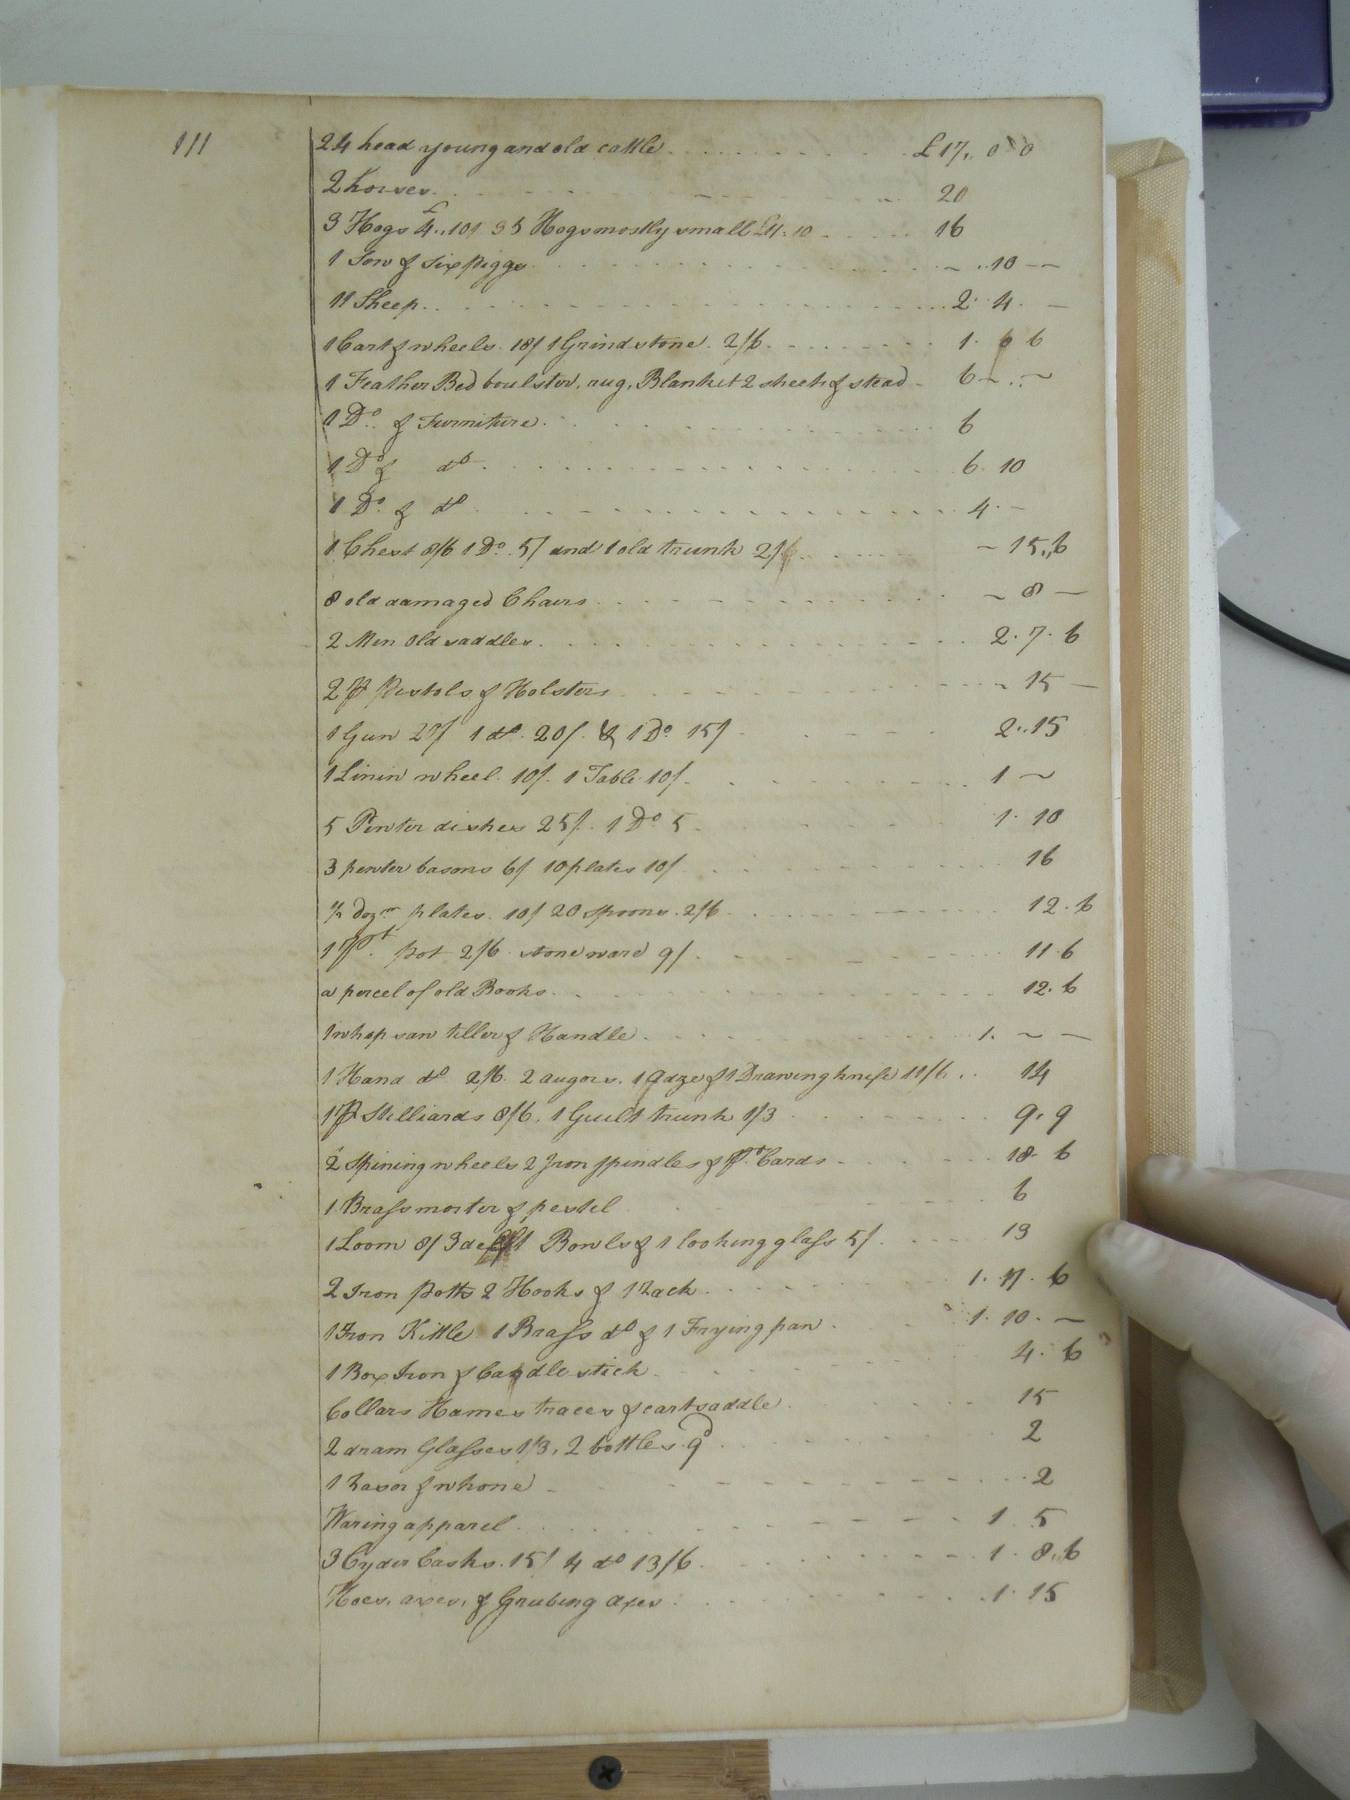 111
24 head young and old cattle £17,, 0 0
2 horses 20
3 Hogs £4..10/ 35 Hogs mostly small £11.10 16
1 Sow & Six Piggs 10
11 Sheep 2. 4. —
1 Cart & wheels. 18/ 1 Grindstone. 2/6 1. 0 6
1 Feather Bed boulster, rug, Blanket 2 sheets & stead 6
1 Do. & Furniture 6
1 Do & do 6. 10
1 Do. & do 4. —
1 Chest 8/6 1 Do. 5/ and 1 old trunk 2/ 15,,6
8 old damaged Chairs 8 —
2 Men old saddles 2. 7. 6
2 pr Pistols & Holsters 15 —
1 Gun 20/ 1 do. 20/. & 1 Do 15/ 2..15
1 Linin wheel. 10/. 1 Table. 10/ 1
5 Pewter dishes 25/. 1 Do 5 1. 10
3 pewter basons 6/ 10 plates 10/ 16
½ dozn plates. 10/ 20 spoons. 2/6 12. 6
1 pot 2/6 stoneware 9/ 11. 6
a percel of old Books 12. 6
1 whopsaw tiller & Handle 1. — —
1 Hand do 2/6. 2 augors. 1 adze & 1 Drawing knife 11/6 14
1 pr Stilliards 8/6. 1 Guilt trunk 1/3 9. 9
2 Spining wheels 2 Iron spindles & pr Cards 18. 6
1 Brass morter & pestel 6
1 Loom 8/ 3 delft Bowls & 1 looking glass 5/ 13
2 Iron Potts 2 Hooks & 1 Rack 1. 17. 6
1 Iron Kittle 1 Brass do & 1 Frying pan 1. 10. —
1 Box Iron & Candlestick 4. 6
Collars Hames traces & cartsaddle 15
2 dram Glasses 1/3, 2 bottles 9d 2
1 Rasor & whone 2
Waring apparel 1 5
3 Cyder Casks. 15/ 4 do 13/6 1. 8,,6
Hoes, axes, & Grubing axes 1. 15